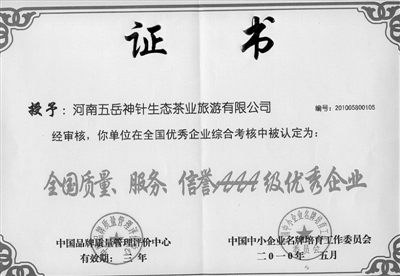 证书
授予：河南五岳神针生态茶业旅游有限公司 编号：201005800106
经审核，你单位在全国优秀企业综合考核中被认定为：
全国质量、服务、信誉AAA级优秀企业
中国品牌质量管理评价中心 中国中小企业名牌培育工作委员会
有效期：三年 二〇一〇年 五月